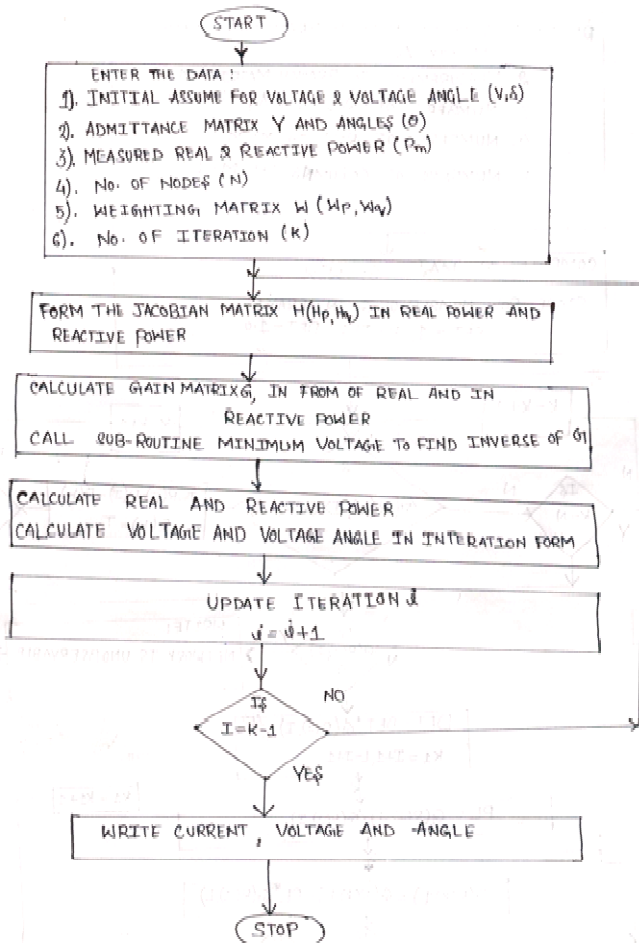 START
ENTER THE DATA :
1). INITIAL ASSUME FOR VOLTAGE & VOLTAGE ANGLE (V,δ)
2). ADMITTANCE MATRIX Y AND ANGLES (θ)
3). MEASURED REAL & REACTIVE POWER (Pm)
4). No. OF NODES (N)
5). WEIGHTING MATRIX W (Wp, Wq)
6). No. OF ITERATION (K)
FORM THE JACOBIAN MATRIX H(Hp,Hq) IN REAL POWER AND
REACTIVE POWER
CALCULATE GAIN MATRIX G, IN FROM OF REAL AND IN
REACTIVE POWER
CALL SUB-ROUTINE MINIMUM VOLTAGE TO FIND INVERSE OF G
CALCULATE REAL AND REACTIVE POWER
CALCULATE VOLTAGE AND VOLTAGE ANGLE IN INTERATION FORM
UPDATE ITERATION i
i = i+1
IS
I=K-1
NO
YES
WRITE CURRENT, VOLTAGE AND ANGLE
STOP